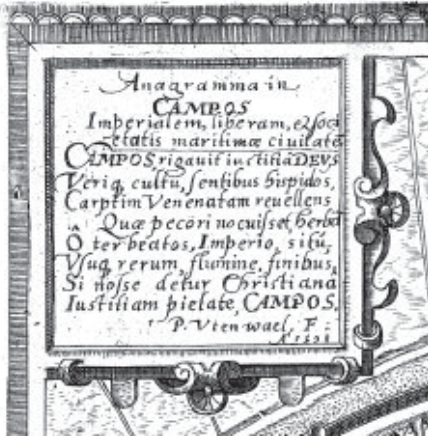 Anagramma in
CAMPOS
Imperialem, liberam, & soci
etatis maritimæ ciuitatẽ
CAMPOS rigauit iustitia DEVS
Veriq, cultu, sentibus hispidos,
Carptim Venenatam reuellens
Quæ pecori nocuisset herbã
Ô ter beatos, Imperio, situ,
Vsuq rerum, flumine, finibus,
Si nosse detur Christiana
Iustitiam pietate, CAMPOS.
P. Vten wael, F: